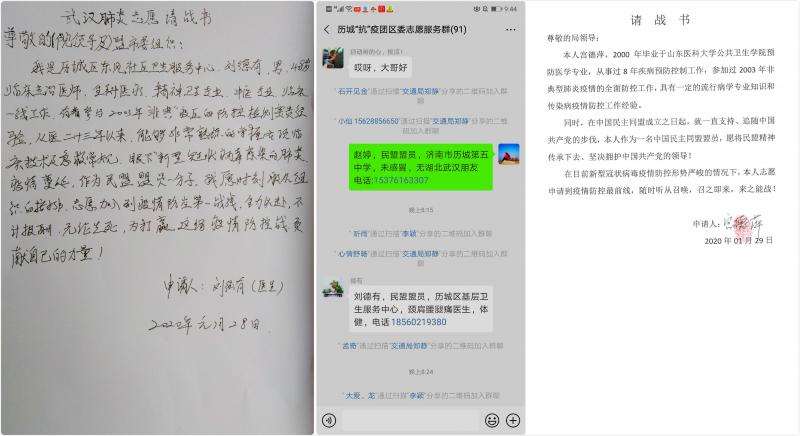 武汉肺炎志愿请战书
尊敬的(院领导及)盟市委组织:
我是历城区东风社区卫生服务中心,刘德有,男,
临床主治医师,
一线工作,
验,从医二十三年以来,能够非常熟练的掌握
疫情蔓延,作为民盟盟员一份子,我愿时刻服从组
织的安排,志愿加入到疫情防控第一战线,全力以赴,不
计报酬,无论生死,为打赢这场疫情防控战贡
献自己的力量!
申请人:刘德有(医生)
2020年元月28日
9:44
历城“抗”疫团区委志愿服务群(91)
哎呀,大哥好
“石开见金”通过扫描“交通局郑静”分享的二维码加入群
聊
“小仙 15628856650”通过扫描“交通局郑静”分享的二维
码加入群聊
赵婷,民盟盟员,济南市历城第五
中学,未感冒,无湖北武汉朋友
电话:15376163307
晚上8:15
“听雨”通过扫描“李颖”分享的二维码加入群聊
“心情舒畅”通过扫描“交通局郑静”分享的二维码加入
群聊
德有
刘德有,民盟盟员,历城区基层卫
生服务中心,颈肩腰腿痛医生,体
健,电话 18560219380
“孟奇”通过扫描“交通局郑静”分享的二维码加入群聊
晚上8:24
“大爱。龙”通过扫描“李颖”分享的二维码加入群聊
请 战 书
尊敬的局领导:
本人宫德萍,2000 年毕业于山东医科大学公共卫生学院预
防医学专业,从事过 8 年疾病预防控制工作,参加过 2003 年非
典型肺炎疫情的全面防控工作,具有一定的流行病学专业知识和
传染病疫情防控工作经验。
同时,在中国民主同盟成立之日起,就一直支持、追随中国
共产党的步伐,本人作为一名中国民主同盟盟员,愿将民盟精神
传承下去、坚决拥护中国共产党的领导!
在目前新型冠状病毒疫情防控形势严峻的情况下,本人志愿
申请到疫情防控最前线,随时听从召唤,召之即来,来之能战!
申请人:宫德萍
2020 年 01 月 29 日